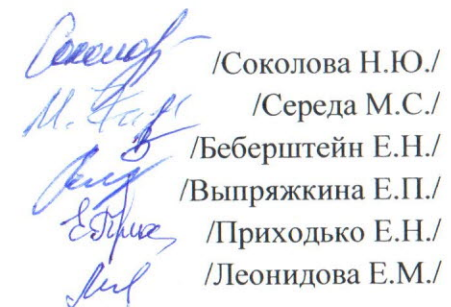 /Соколова Н.Ю./
/Середа М.С./
/Беберштейн Е.Н./
/Выпряжкина Е.П./
/Приходько Е.Н./
/Леонидова Е.М./